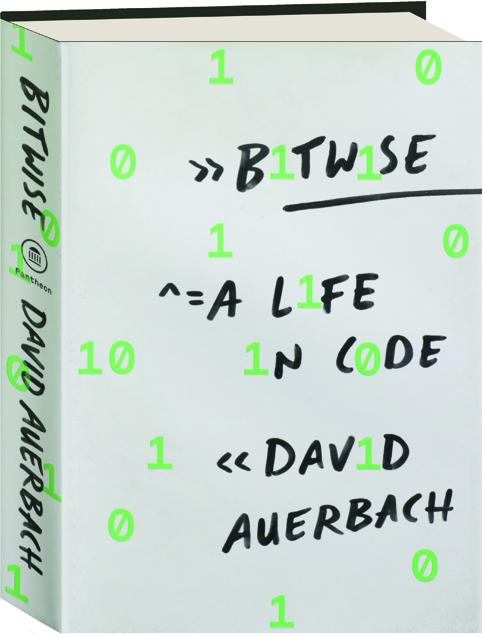 1 0
0 >> B1TW1SE
1 0
^=A L1FE
10 1N C0DE
1 << DAV1D
0 AUERBACH
0
1
1
BITWISE
0
1
Pantheon
DAVID AUERBACH
0
1
1